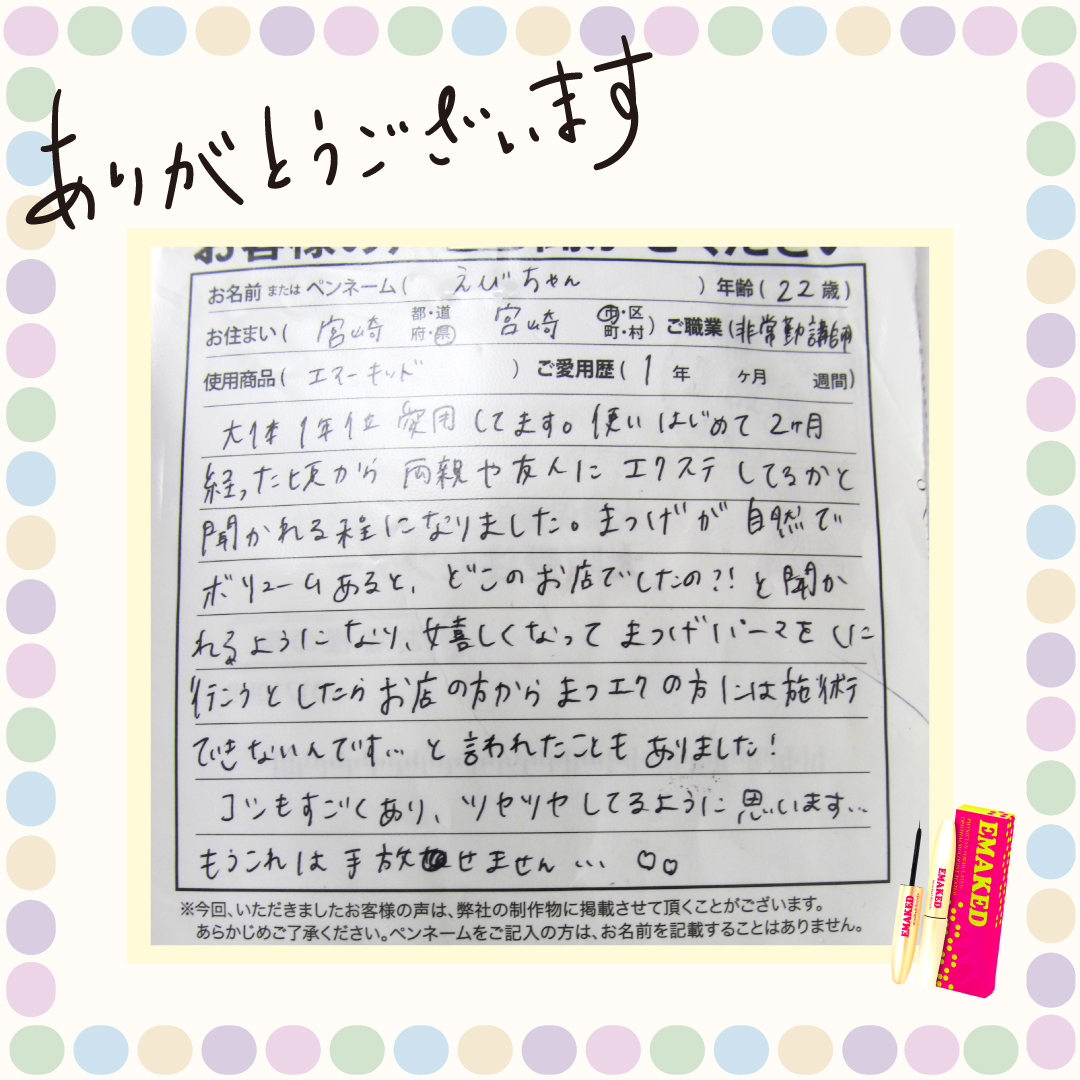 ありがとうございます
お名前 または ペンネーム( えびちゃん ) 年齢( 22 歳)
お住まい( 宮崎 都・道 府・県 宮崎 市・区 町・村 ) ご職業(非常勤講師
使用商品( エマーキッド ) ご愛用歴( 1 年 ヶ月 週間)
大体1年位愛用してます。使いはじめて2ヶ月
経った頃から両親や友人にエクステしてるかと
聞かれる程になりました。まつげが自然で
ボリュームあると、どこのお店でしたの?!と聞か
れるようになり、嬉しくなってまつげパーマをしに
行こうとしたらお店の方からまつエクの方には施術
できないんです…と言われたこともありました!
コシもすごくあり、ツヤツヤしてるように思います…
もうこれは手放せません… ♡♡
※今回、いただきましたお客様の声は、弊社の制作物に掲載させて頂くことがございます。
あらかじめご了承ください。ペンネームをご記入の方は、お名前を記載することはありません。
EMAKED
EMAKED
EMAKED